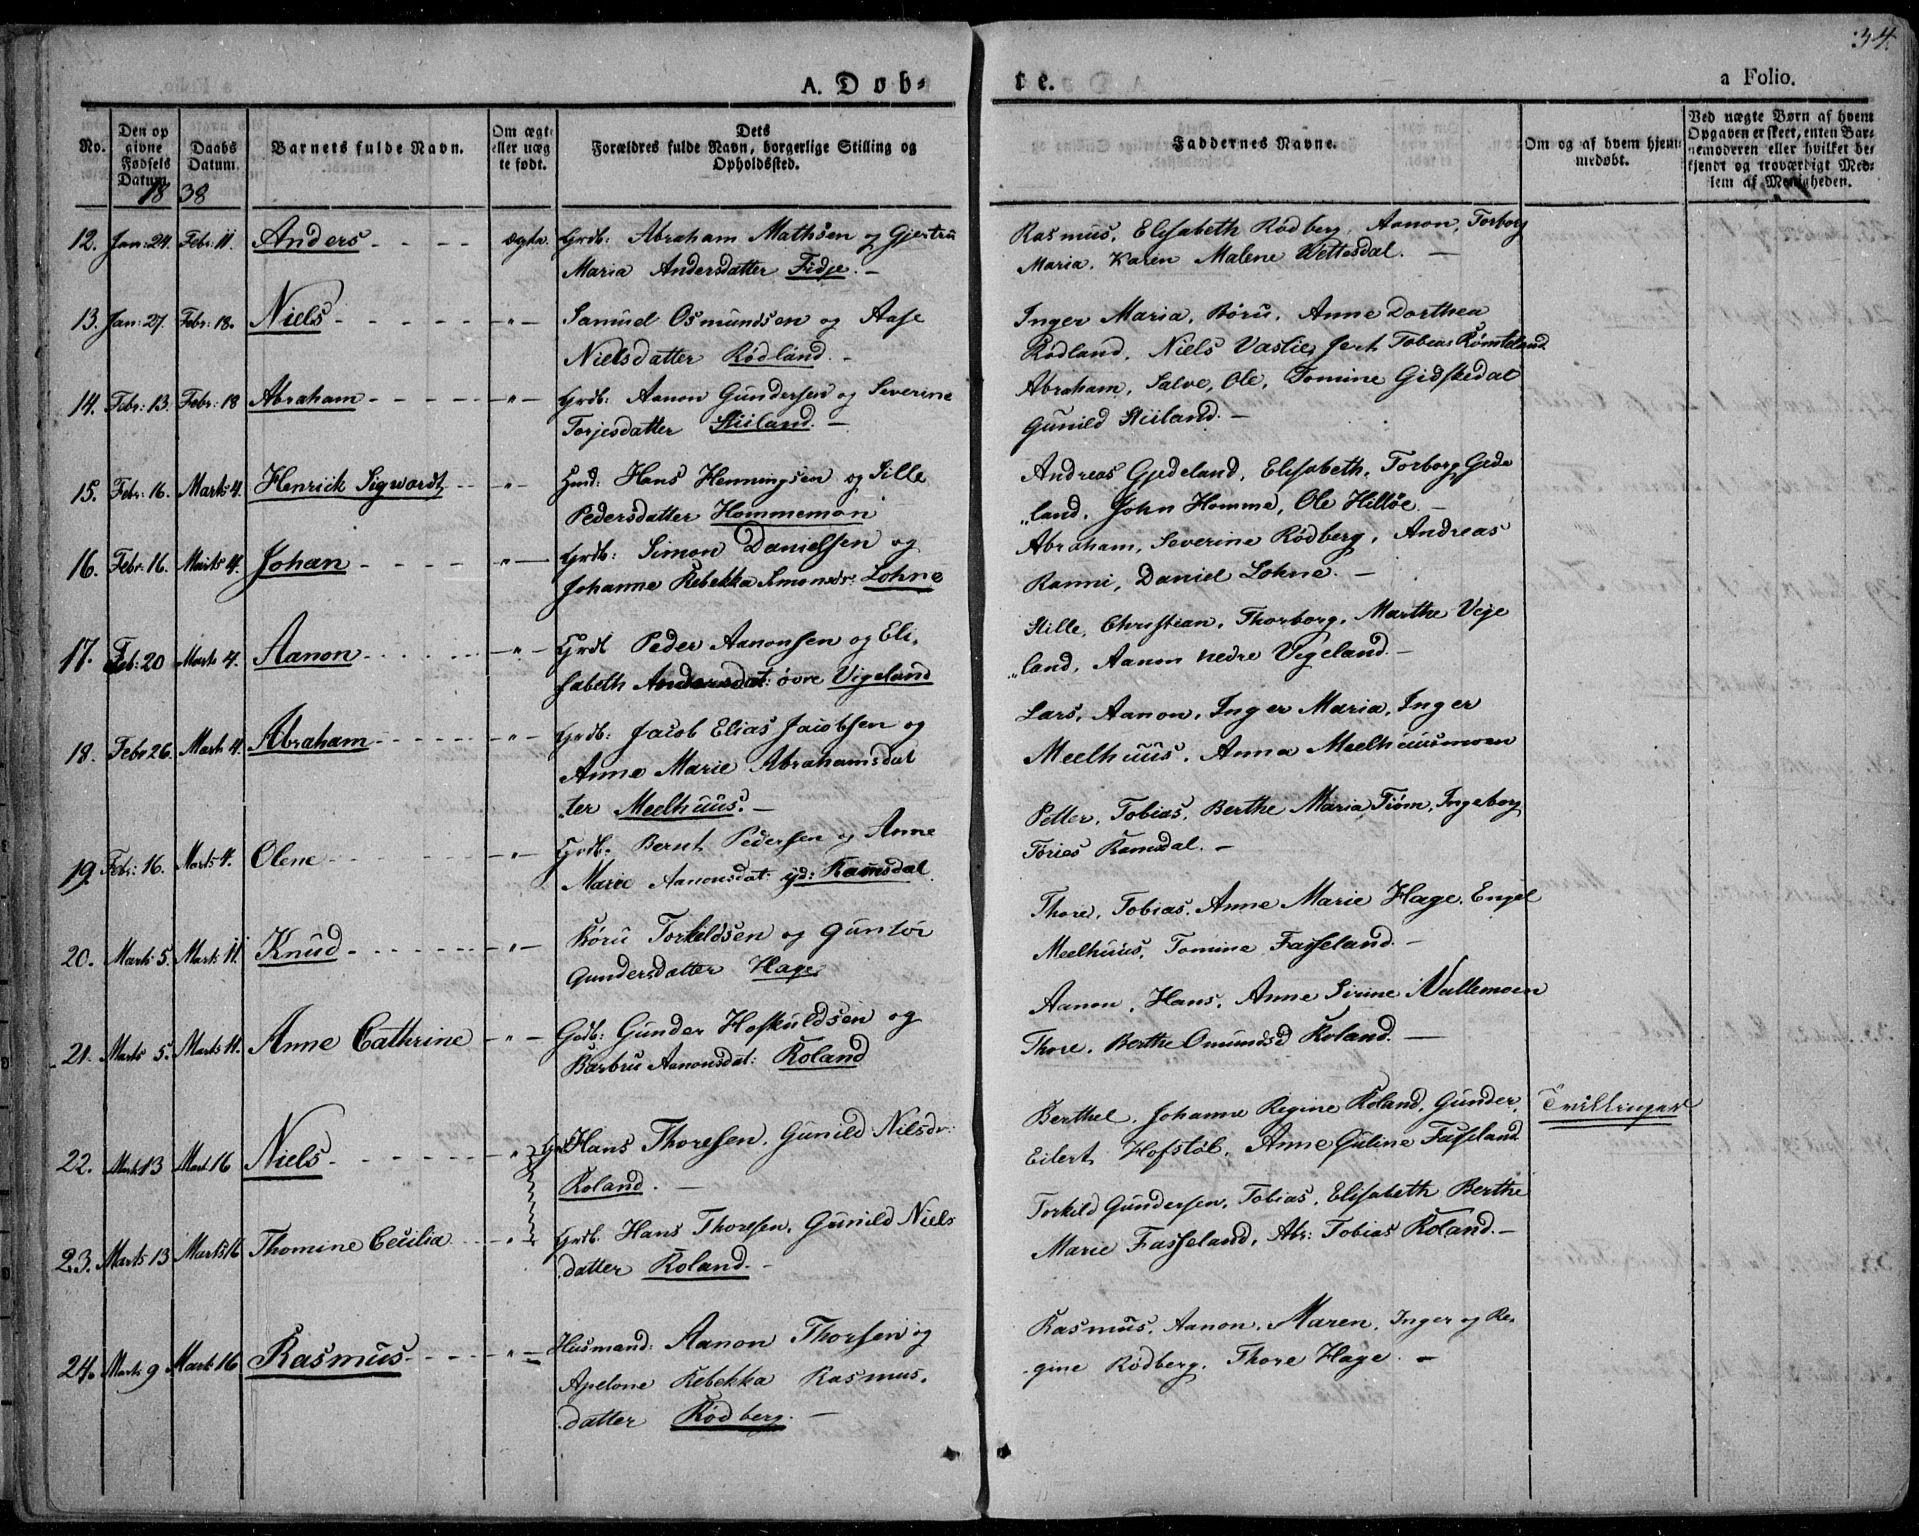 34.
A. Døb-
te.
a Folio.
No.
Den op
givne
Fødsels
Datum.
Daabs
Datum.
Barnets fulde Navn.
Om ægte
eller uæg
te født.
Dets
Forældres fulde Navn, borgerlige Stilling og
Opholdssted.
Faddernes Navne.
Om og af hvem hjem-
medøbt.
Ved uægte Børn af hvem
Opgaven er skeet, enten Bar-
nemoderen eller hvilket be-
kjendt og troværdigt Med-
lem af Menigheden.
18 38
12. Jan: 24. Febr: 11. Anders ægte. Grdb: Abraham Mathsen og Gjertru
Maria Andersdatter Fidje.
Rasmus, Elisabeth Rødberg, Aanon, Torborg
Maria, Karen Malene Wettesdal.
13. Jan: 27. Febr: 18. Niels -"- Samuel Osmundsen og Aase
Nielsdatter Rødland.
Inger Maria, Børu, Anne Dorthea
Rødland, Niels Tobias Rømteland
14. Febr: 13. Febr: 18 Abraham -"- Grdb: Aanon Gundersen og Severine
Torjesdatter Stiland.
Abraham, Salve, Ole, Tomine Gidskedal
Gunild Stiland.
15. Febr: 16. Marts 4. Henrick Sigwardt -"- Hans Henningsen og Sille
Pedersdatter Hommemon
Andreas Gjedeland, Elisabeth, Torborg Gede
"land, John Homme, Ole Hilløe
16. Febr: 16. Marts 4. Johan -"- Grdb: Simon Danielsen og
Johanne Rebekka Simonsdr: Lohne
Abraham, Severine Rødberg, Andreas
Ronni, Daniel Lohne.
17. Feb: 20 Marts 4. Aanon -"- Grdb Peder Aanonsen og Eli-
sabeth Andersdat: øvre Vigeland
Sille, Christian, Thorborg, Marthe Vige
"land, Aanon nedre Vigeland
18. Febr 26. Marts 4. Abraham -"- Grdb: Jacob Elias Jacobsen og
Anne Marie Abrahamsdat
"ter Meelhuus.
Lars, Aanon, Inger Maria, Inger
Meelhuus, Anna Meelhuusmoen
19. Febr: 16. Marts 4. Olene -"- Grdb. Bernt Pedersen og Anne
Marie Aanonsdat: yd: Ramsdal
Petter, Tobias, Berthe Maria Tiøm, Ingeborg
Tories Ramsdal.
20. Marts 5. Marts 11. Knud -"- Børu Torkeldsen og Guntor
Gundersdatter Hage
Thore, Tobias, Anne Marie Hage, Engel
Meelhuus, Tomine Fasseland.
21. Marts 5. Marts 11. Anne Cathrine -"- Gdb: Gunder Hofskuldsen og
Barbru Aanonsdat: Roland
Aanon, Hans, Anne Sirine Vallemoen
Thore, Berthe Omundsd Roland.
22. Marts 13 Mart 16 Niels -"- Hans Thoresen, Gunild Nilsdr:
Roland.
Berthel, Johanne Regine Roland, Gunder,
Eilert Hofstøl, Anne Guline Fasseland
Tvillinger
23. Marts 13 Marts 16 Thomine Cecilia -"- Grdb. Hans Thoresen, Gunild Niels
datter Roland.
Torkild Gundersen, Tobias, Elisabeth Berthe
Marie Fasseland, Abr: Tobias Roland.
24. Marts 9 Marts 16 Rasmus -"- Husmand: Aanon Thorsen og
Apelone Rebekka Rasmus-
datter Rødberg.
Rasmus, Aanon, Maren, Inger og Re-
gine Rødberg, Thore Hage.